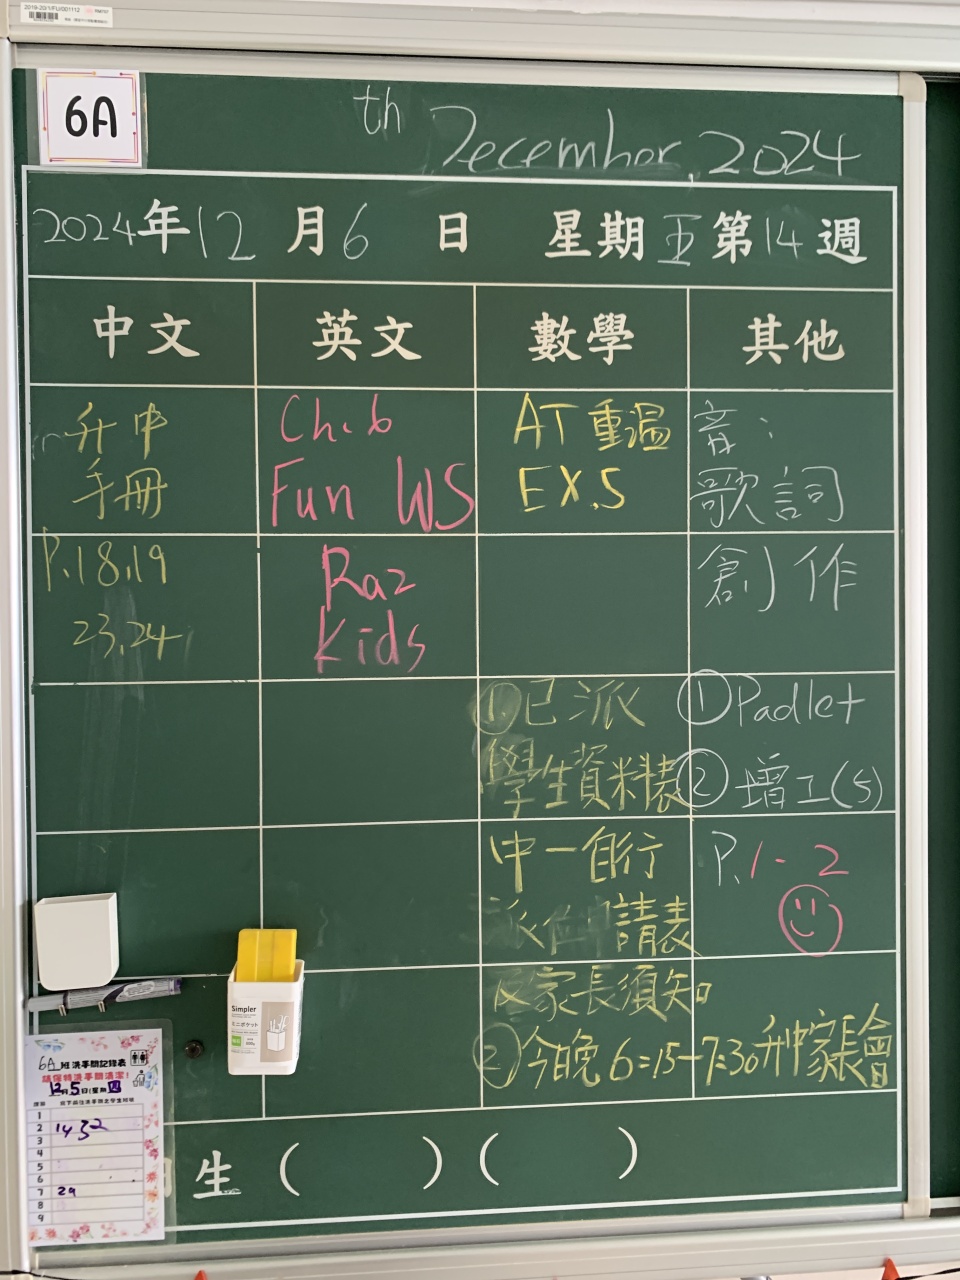 2019-20/1/FU/001112
6A
th December, 2024
2024年12月6日 星期五第14週
中文 英文 數學 其他
升中
手冊
P.18,19
23,24
Ch.6
Fun WS
Raz
Kids
AT重溫
EX.5
①已派
學生資料表
中一自行
請表
及家長須知
②今晚6:15-7:30升中家長會
音:
歌詞
創作
①Padlet
②增工(5)
P.1-2
生 ( ) ( )
Simpler
ミニポケット
6A班洗手間記錄表
請保持洗手間清潔!
12月5日(星期四)
1
2 14 32
3
4
5
6
7 29
8
9